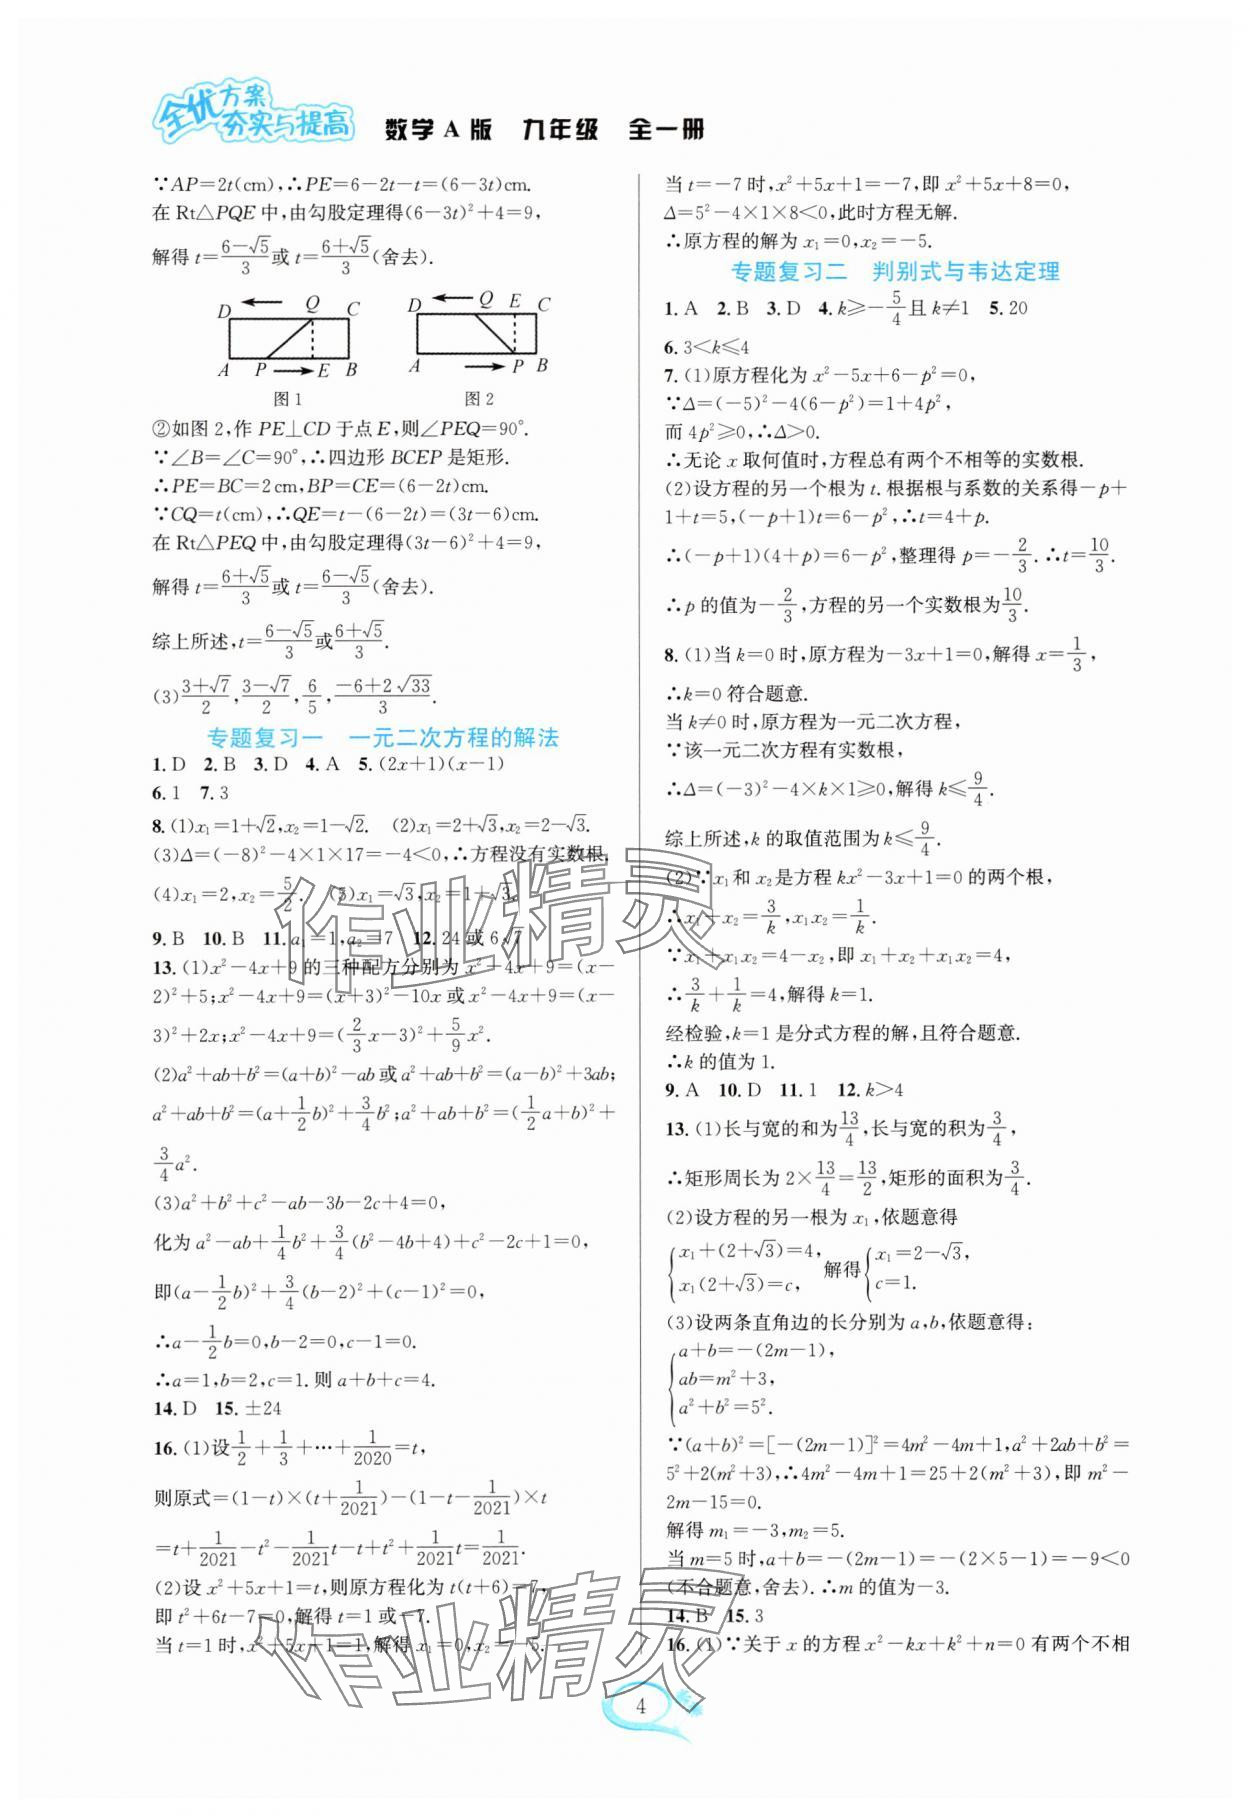 全优方案
夯实与提高
数学A版 九年级 全一册
∵AP=2t(cm),∴PE=6-2t-t=(6-3t)cm.
在Rt△PQE中,由勾股定理得(6-3t)²+4=9,
解得t=(6-√5)/3或t=(6+√5)/3(舍去).
D Q C
A P E B
图1
D Q E C
A P B
图2
②如图2,作PE⊥CD于点E,则∠PEQ=90°.
∵∠B=∠C=90°,∴四边形BCEP是矩形.
∴PE=BC=2cm,BP=CE=(6-2t)cm.
∵CQ=t(cm),∴QE=t-(6-2t)=(3t-6)cm.
在Rt△PEQ中,由勾股定理得(3t-6)²+4=9,
解得t=(6+√5)/3或t=(6-√5)/3(舍去).
综上所述,t=(6-√5)/3或(6+√5)/3.
(3)(3+√7)/2,(3-√7)/2,6/5,(-6+2√33)/3.
专题复习一 一元二次方程的解法
1.D 2.B 3.D 4.A 5.(2x+1)(x-1)
6.1 7.3
8.(1)x₁=1+√2,x₂=1-√2. (2)x₁=2+√3,x₂=2-√3.
(3)Δ=(-8)²-4×1×17=-4<0,∴方程没有实数根.
(4)x₁=2,x₂=5/2. (5)x₁=√3,x₂=1+√3.
9.B 10.B 11.a₁=1,a₂=7 12.24或6√7
13.(1)x²-4x+9的三种配方分别为x²-4x+9=(x-
2)²+5;x²-4x+9=(x+3)²-10x或x²-4x+9=(x-
3)²+2x;x²-4x+9=(2/3x-3)²+5/9x².
(2)a²+ab+b²=(a+b)²-ab或a²+ab+b²=(a-b)²+3ab;
a²+ab+b²=(a+1/2b)²+3/4b²;a²+ab+b²=(1/2a+b)²+
3/4a².
(3)a²+b²+c²-ab-3b-2c+4=0,
化为a²-ab+1/4b²+3/4(b²-4b+4)+c²-2c+1=0,
即(a-1/2b)²+3/4(b-2)²+(c-1)²=0,
∴a-1/2b=0,b-2=0,c-1=0.
∴a=1,b=2,c=1.则a+b+c=4.
14.D 15.±24
16.(1)设1/2+1/3+…+1/2020=t,
则原式=(1-t)×(t+1/2021)-(1-t-1/2021)×t
=t+1/2021-t²-1/2021t-t+t²+1/2021t=1/2021.
(2)设x²+5x+1=t,则原方程化为t(t+6)=7,
即t²+6t-7=0,解得t=1或-7.
当t=1时,x²+5x+1=1,解得x₁=0,x₂=-5.
当t=-7时,x²+5x+1=-7,即x²+5x+8=0,
Δ=5²-4×1×8<0,此时方程无解.
∴原方程的解为x₁=0,x₂=-5.
专题复习二 判别式与韦达定理
1.A 2.B 3.D 4.k≥-5/4且k≠1 5.20
6.3<k≤4
7.(1)原方程化为x²-5x+6-p²=0,
∵Δ=(-5)²-4(6-p²)=1+4p²,
而4p²≥0,∴Δ>0.
∴无论x取何值时,方程总有两个不相等的实数根.
(2)设方程的另一个根为t.根据根与系数的关系得-p+
1+t=5,(-p+1)t=6-p²,∴t=4+p.
∴(-p+1)(4+p)=6-p²,整理得p=-2/3.∴t=10/3.
∴p的值为-2/3,方程的另一个实数根为10/3.
8.(1)当k=0时,原方程为-3x+1=0,解得x=1/3,
∴k=0符合题意.
当k≠0时,原方程为一元二次方程,
∵该一元二次方程有实数根,
∴Δ=(-3)²-4×k×1≥0,解得k≤9/4.
综上所述,k的取值范围为k≤9/4.
(2)∵x₁和x₂是方程kx²-3x+1=0的两个根,
∴x₁+x₂=3/k,x₁x₂=1/k.
∵x₁+x₁x₂=4-x₂,即x₁+x₂+x₁x₂=4,
∴3/k+1/k=4,解得k=1.
经检验,k=1是分式方程的解,且符合题意.
∴k的值为1.
9.A 10.D 11.1 12.k>4
13.(1)长与宽的和为13/4,长与宽的积为3/4,
∴矩形周长为2×13/4=13/2,矩形的面积为3/4.
(2)设方程的另一根为x₁,依题意得
{x₁+(2+√3)=4, x₁(2+√3)=c, 解得{x₁=2-√3, c=1.
(3)设两条直角边的长分别为a,b,依题意得:
{a+b=-(2m-1),
ab=m²+3,
a²+b²=5².
∵(a+b)²=[-(2m-1)]²=4m²-4m+1,a²+2ab+b²=
5²+2(m²+3),∴4m²-4m+1=25+2(m²+3),即m²-
2m-15=0.
解得m₁=-3,m₂=5.
当m=5时,a+b=-(2m-1)=-(2×5-1)=-9<0
(不合题意,舍去).∴m的值为-3.
14.B 15.3
16.(1)∵关于x的方程x²-kx+k²+n=0有两个不相
4
作业精灵
作业精灵